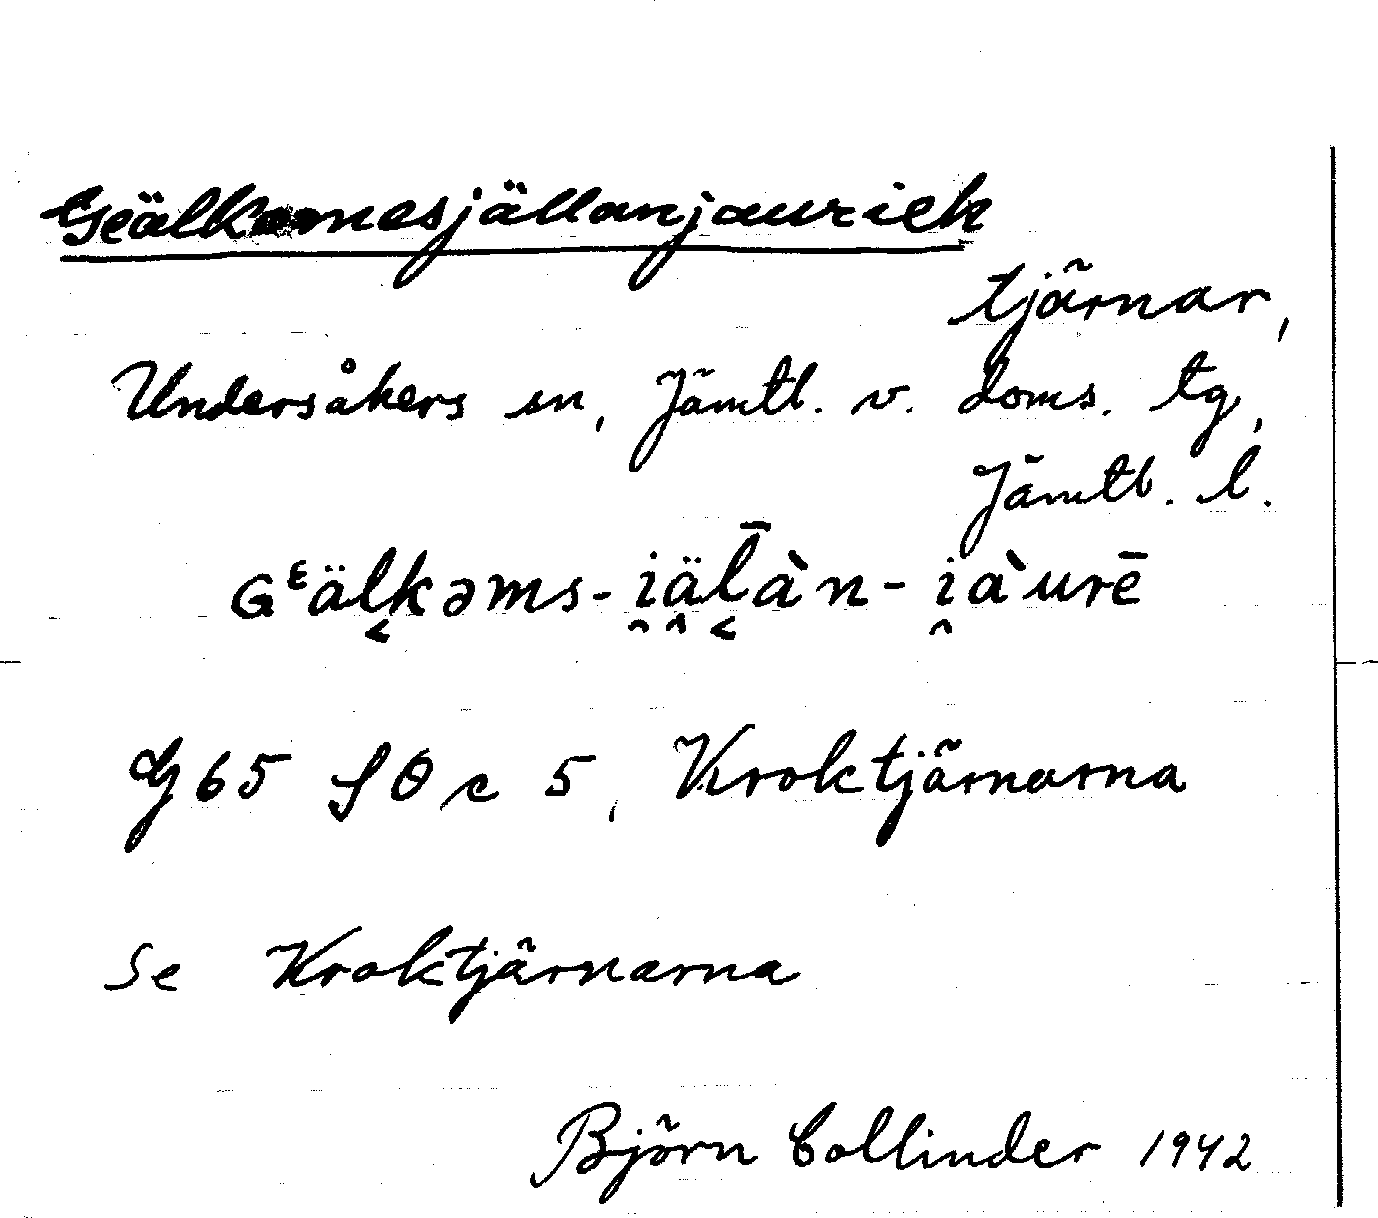 Geälkomesjällanjaurieh
tjärnar,
Undersåkers sn, Jämtl. v. doms. tg,
Jämtl. l.
Gᵋäl̬kəms-i̯ä̭l̬̄àn-i̯àurē
G 65 SO c 5, Kroktjärnarna
Se Kroktjärnarna
Björn Collinder 1942